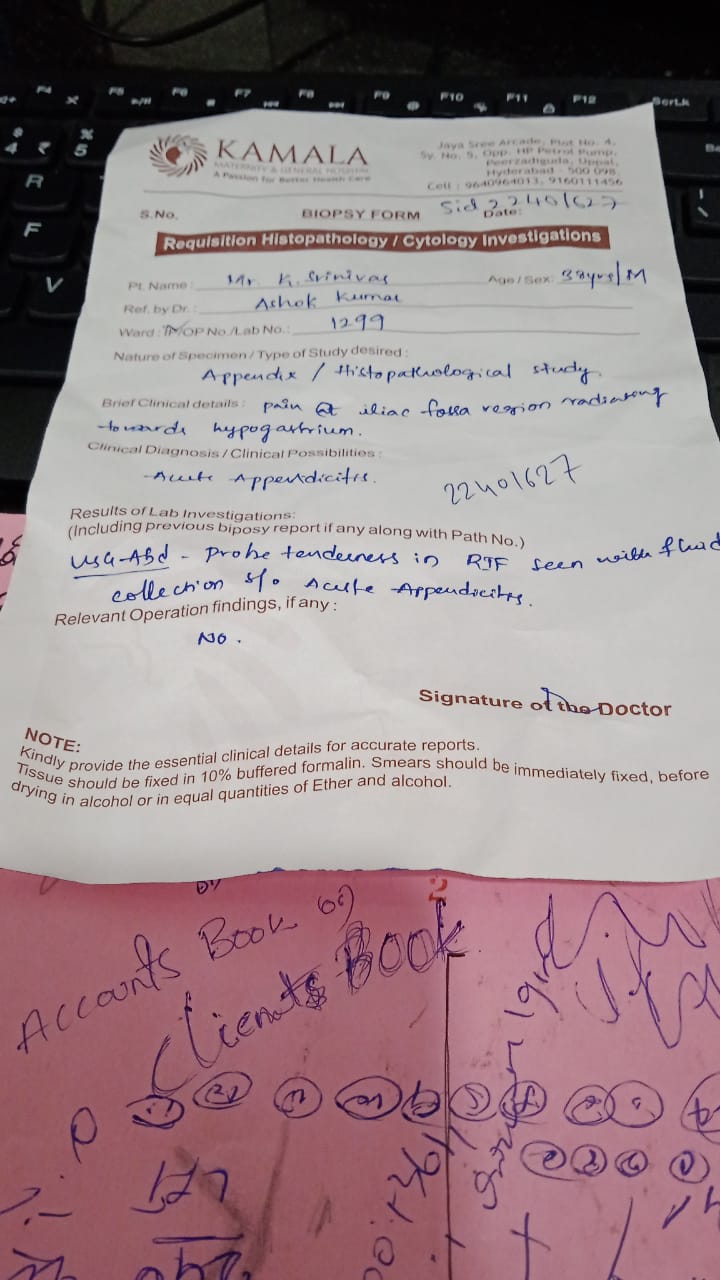 KAMALA
MATERNITY & GENERAL HOSPITAL
A Passion for Better Health Care
Jaya Sree Arcade, Plot No. 4,
Sy. No. 5, Opp. HP Petrol Pump,
Peerzadiguda, Uppal,
Hyderabad - 500 098.
Cell : 9640964013, 9160111456
S.No.
BIOPSY FORM
Sid 22401627
Date:
Requisition Histopathology / Cytology Investigations
Pt. Name : Mr. K. Srinivas
Age / Sex: 38yrs/M
Ref. by Dr. : Ashok Kumar
Ward : IP/OP No./Lab No.: 1299
Nature of Specimen / Type of Study desired :
Appendix / Histopathological study
Brief Clinical details : pain @ iliac fossa region radiating
towards hypogastrium.
Clinical Diagnosis / Clinical Possibilities :
Acute Appendicitis.
22401627
Results of Lab Investigations:
(Including previous biposy report if any along with Path No.)
USG-Abd - Probe tenderness in RIF seen with fluid
collection s/o Acute Appendicitis.
Relevant Operation findings, if any :
NO.
Signature of the Doctor
NOTE:
Kindly provide the essential clinical details for accurate reports.
Tissue should be fixed in 10% buffered formalin. Smears should be immediately fixed, before
drying in alcohol or in equal quantities of Ether and alcohol.
Accounts Book
Clients Book
F4
F5
F6
F7
F8
F9
F10
F11
F12
ScrLk
$
4
₹
%
5
R
F
V